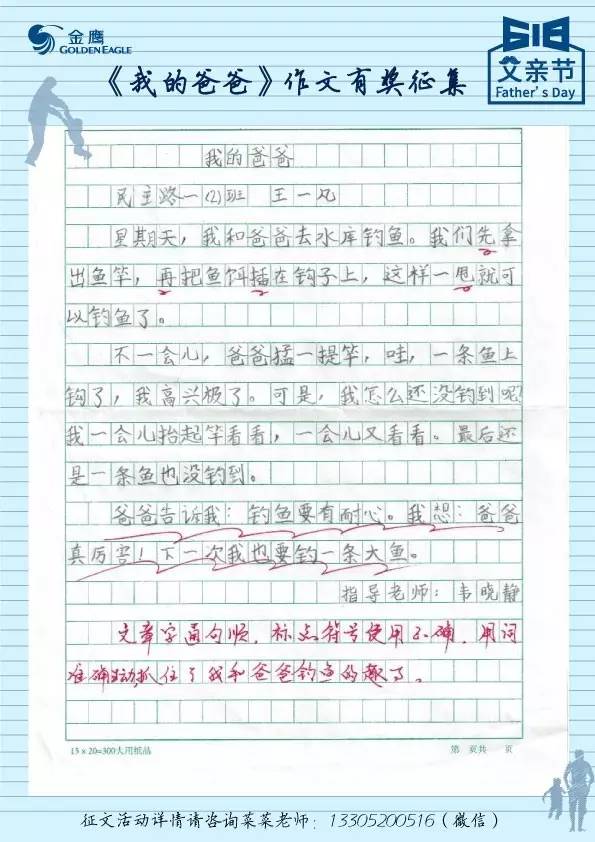 金鹰
GOLDEN EAGLE
618
父亲节
Father's Day
《我的爸爸》作文有奖征集
我的爸爸
民主路一(2)班 王一凡
星期天，我和爸爸去水库钓鱼。我们先拿
出鱼竿，再把鱼饵插在钩子上，这样一甩就可
以钓鱼了。
不一会儿，爸爸猛一提竿，哇，一条鱼上
钩了，我高兴极了。可是，我怎么还没钓到呢？
我一会儿抬起竿看看，一会儿又看看。最后还
是一条鱼也没钓到。
爸爸告诉我：钓鱼要有耐心。我想：爸爸
真厉害！下一次我也要钓一条大鱼。
指导老师：韦晓静
文章字通句顺，标点符号使用正确，用词
准确生动，抓住了我和爸爸钓鱼的趣了。
15×20=300人用纸品
第 页共 页
征文活动详情请咨询菜菜老师：13305200516（微信）